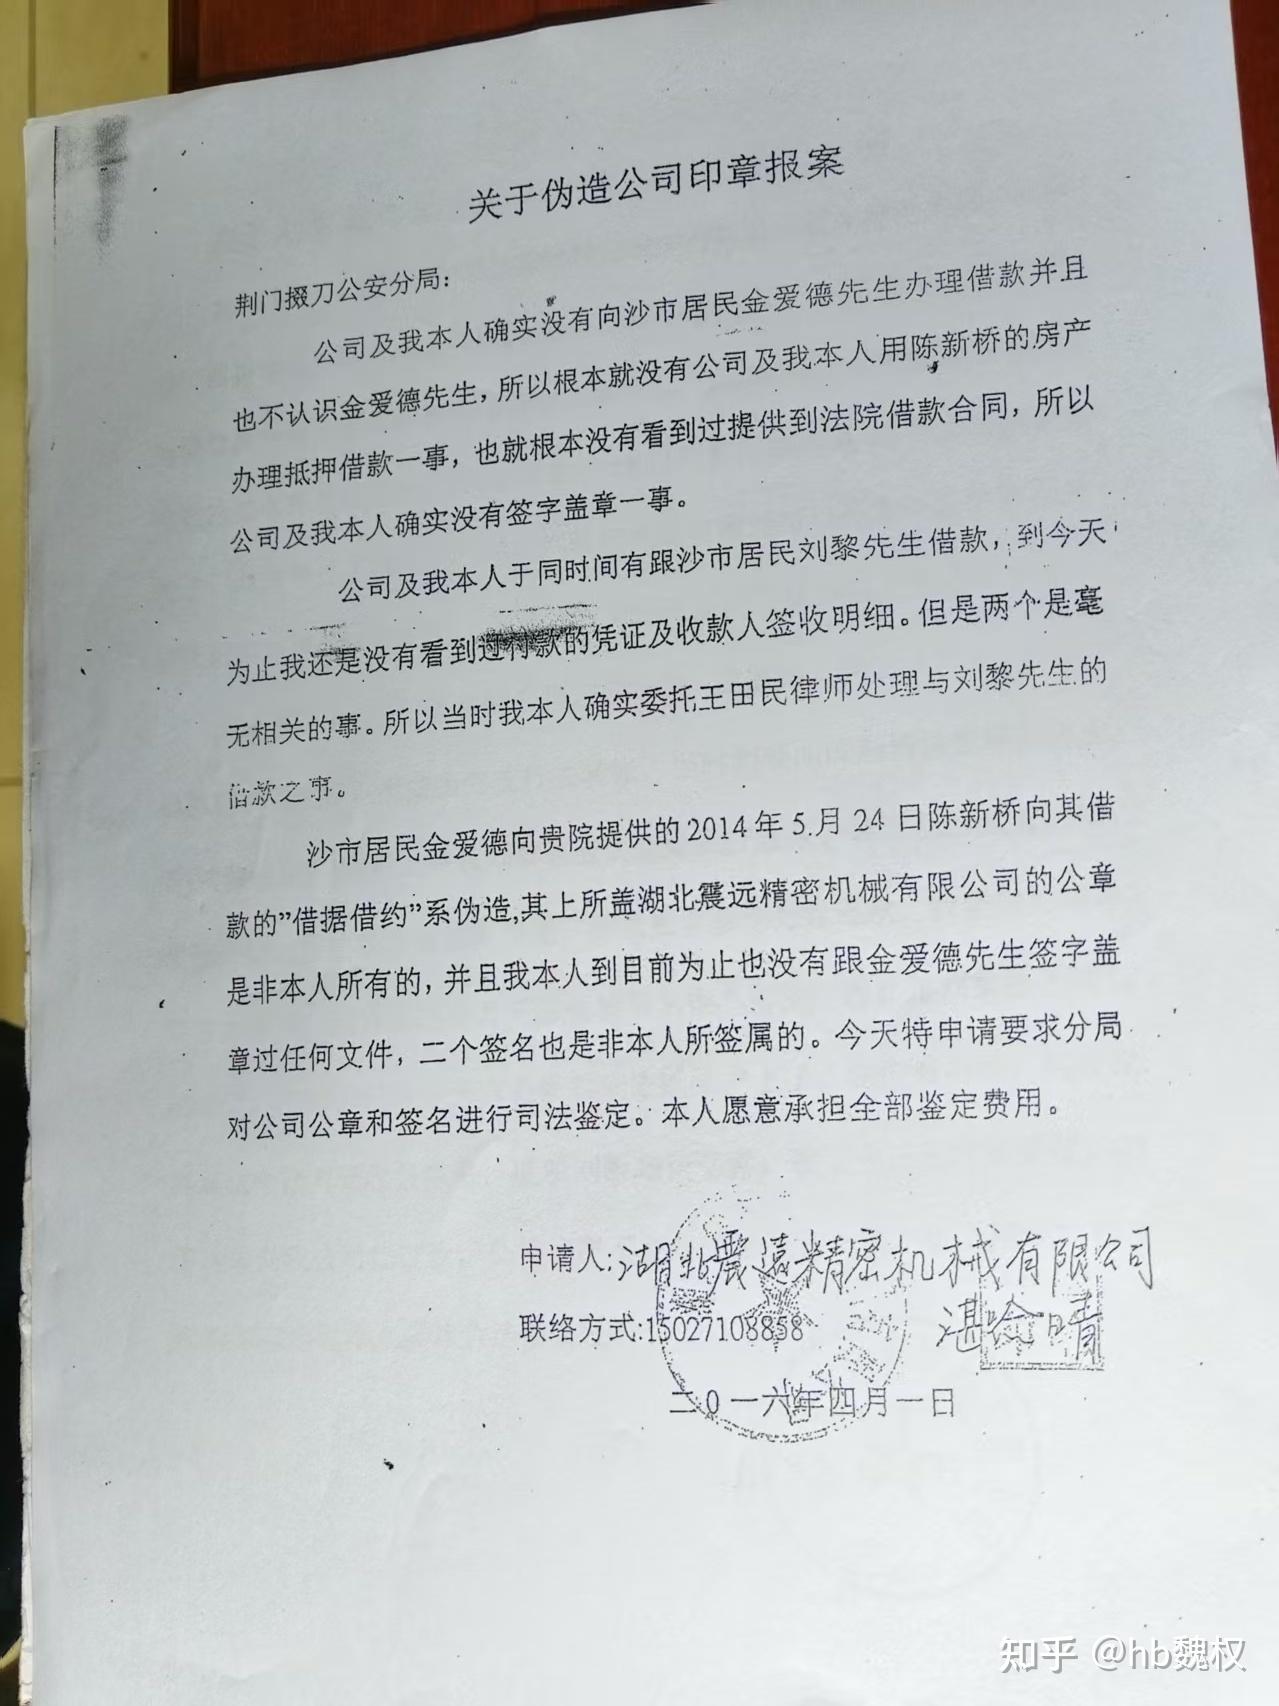 关于伪造公司印章报案
荆门掇刀公安分局：
公司及我本人确实没有向沙市居民金爱德先生办理借款并且
也不认识金爱德先生，所以根本就没有公司及我本人用陈新桥的房产
办理抵押借款一事，也就根本没有看到过提供到法院借款合同，所以
公司及我本人确实没有签字盖章一事。
公司及我本人于同时间有跟沙市居民刘黎先生借款，到今天
为止我还是没有看到过付款的凭证及收款人签收明细。但是两个是毫
无相关的事。所以当时我本人确实委托王田民律师处理与刘黎先生的
借款之事。
沙市居民金爱德向贵院提供的2014年5月24日陈新桥向其借
款的”借据借约”系伪造,其上所盖湖北震远精密机械有限公司的公章
是非本人所有的，并且我本人到目前为止也没有跟金爱德先生签字盖
章过任何文件，二个签名也是非本人所签属的。今天特申请要求分局
对公司公章和签名进行司法鉴定。本人愿意承担全部鉴定费用。
申请人:湖北震遠精密机械有限公司
联络方式:15027108858 湛 晴
二0一六年四月一日
知乎 @hb魏权